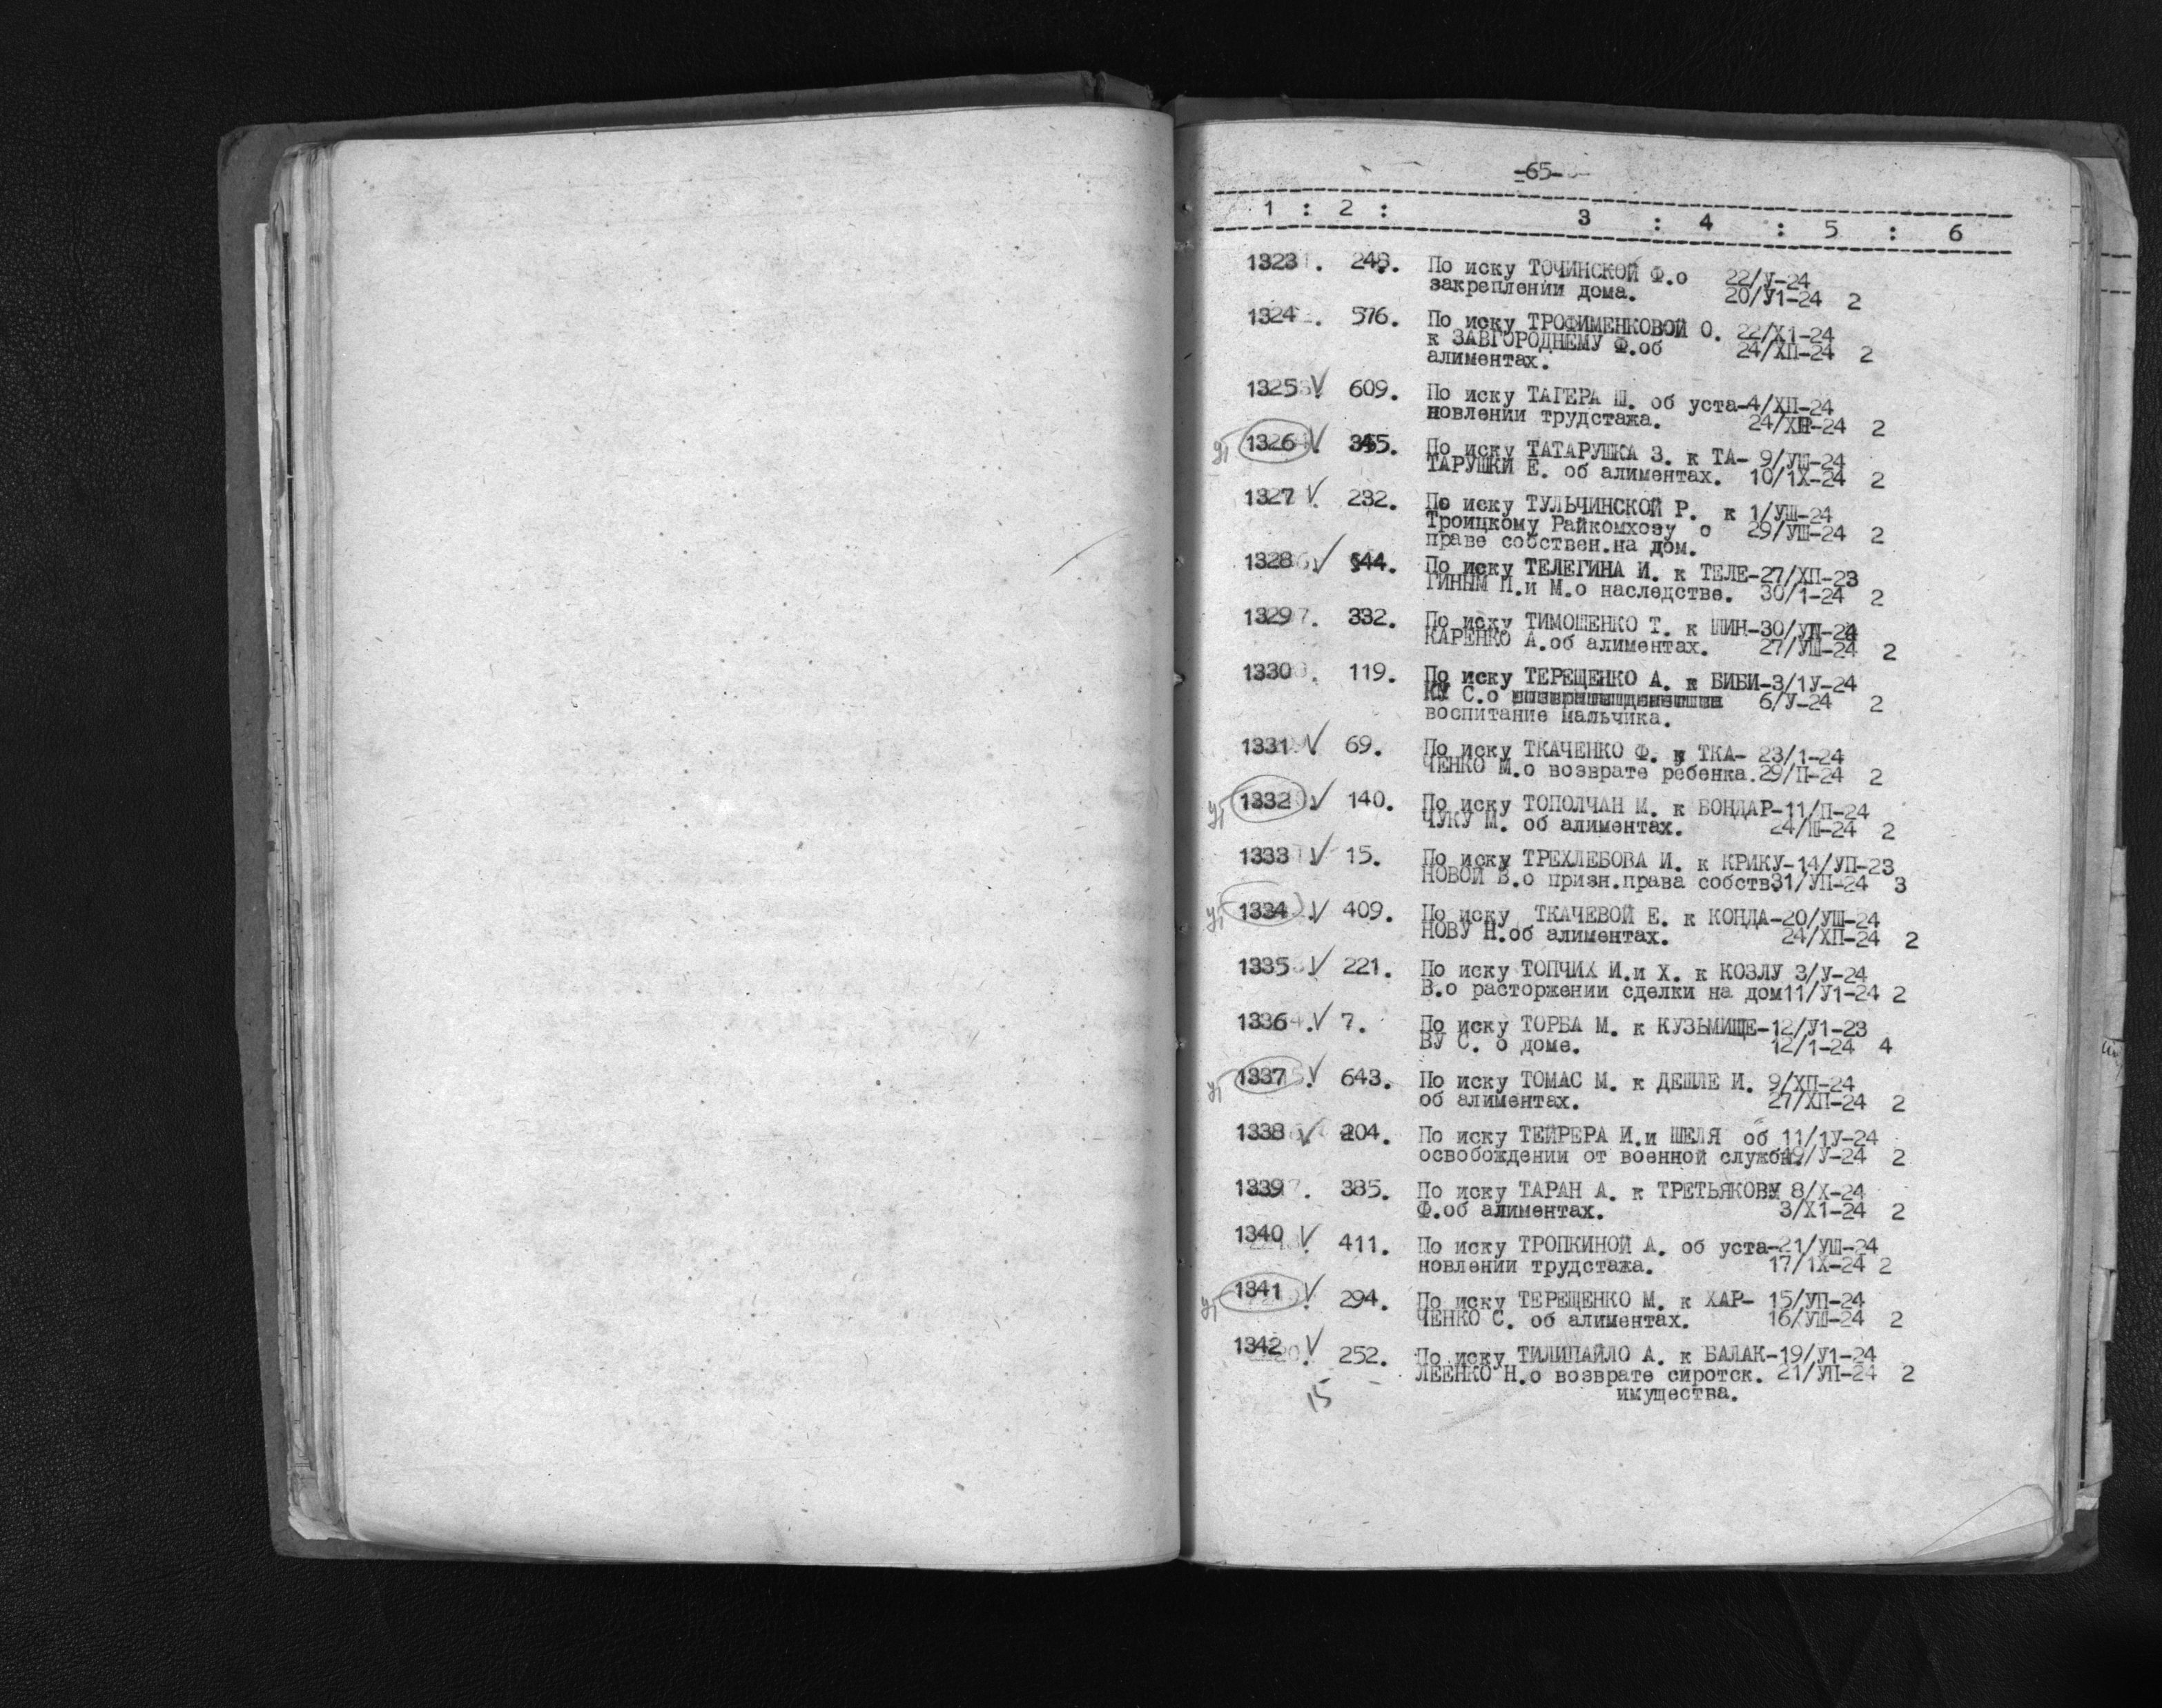 -65-
1 : 2 : 3 : 4 : 5 : 6
1323. 248. По иску ТОЧИНСКОЙ Ф.о 22/У-24
закреплении дома. 20/У1-24 2
1324. 576. По иску ТРОФИМЕНКОВОЙ О. 22/Х1-24
к ЗАВГОРОДНЕМУ Ф.об 24/ХП-24 2
алиментах.
1325 V. 609. По иску ТАГЕРА Ш. об уста-4/ХП-24
новлении трудстажа. 24/ХП-24 2
1326 V. 345. По иску ТАТАРУШКА З. к ТА- 9/УШ-24
ТАРУШКИ Е. об алиментах. 10/1Х-24 2
1327 V. 232. По иску ТУЛЬЧИНСКОЙ Р. к 1/УШ-24
Троицкому Райкомхозу о 29/УШ-24 2
праве собствен.на дом.
1328 V 544. По иску ТЕЛЕГИНА И. к ТЕЛЕ-27/ХП-23
ГИНЫМ П.и М.о наследстве. 30/1-24 2
1329. 332. По иску ТИМОШЕНКО Т. к ШИН-30/УП-24
КАРЕНКО А.об алиментах. 27/УШ-24 2
1330. 119. По иску ТЕРЕЩЕНКО А. к БИБИ-3/1У-24
КУ С.о 6/У-24 2
воспитание мальчика.
1331 V 69. По иску ТКАЧЕНКО Ф. к ТКА- 23/1-24
ЧЕНКО М.о возврате ребенка.29/П-24 2
1332 V 140. По иску ТОПОЛЧАН М. к БОНДАР-11/П-24
ЧУКУ М. об алиментах. 24/Ш-24 2
1333 V 15. По иску ТРЕХЛЕБОВА И. к КРИКУ-14/УП-23
НОВОЙ В.о призн.права собств.31/УП-24 3
1334 V 409. По иску ТКАЧЕВОЙ Е. к КОНДА-20/УШ-24
НОВУ Н.об алиментах. 24/ХП-24 2
1335 V 221. По иску ТОПЧИХ И.и Х. к КОЗЛУ 3/У-24
В.о расторжении сделки на дом11/У1-24 2
1336 V 7. По иску ТОРБА М. к КУЗЬМИЩЕ-12/У1-23
ВУ С. о доме. 12/1-24 4
1337 V. 643. По иску ТОМАС М. к ДЕШЛЕ И. 9/ХП-24
об алиментах. 27/ХП-24 2
1338 V 204. По иску ТЕЙРЕРА И.и ШЕЛЯ об 11/1У-24
освобождении от военной службы.19/У-24 2
1339. 385. По иску ТАРАН А. к ТРЕТЬЯКОВУ 8/Х-24
Ф.об алиментах. 3/Х1-24 2
1340 V. 411. По иску ТРОПКИНОЙ А. об уста-21/УШ-24
новлении трудстажа. 17/1Х-24 2
1341 V. 294. По иску ТЕРЕЩЕНКО М. к ХАР- 15/УП-24
ЧЕНКО С. об алиментах. 16/УШ-24 2
1342 V. 252. По иску ТИЛИПАЙЛО А. к БАЛАК-19/У1-24
ЛЕЕНКО Н.о возврате сиротск. 21/УП-24 2
имущества.
15